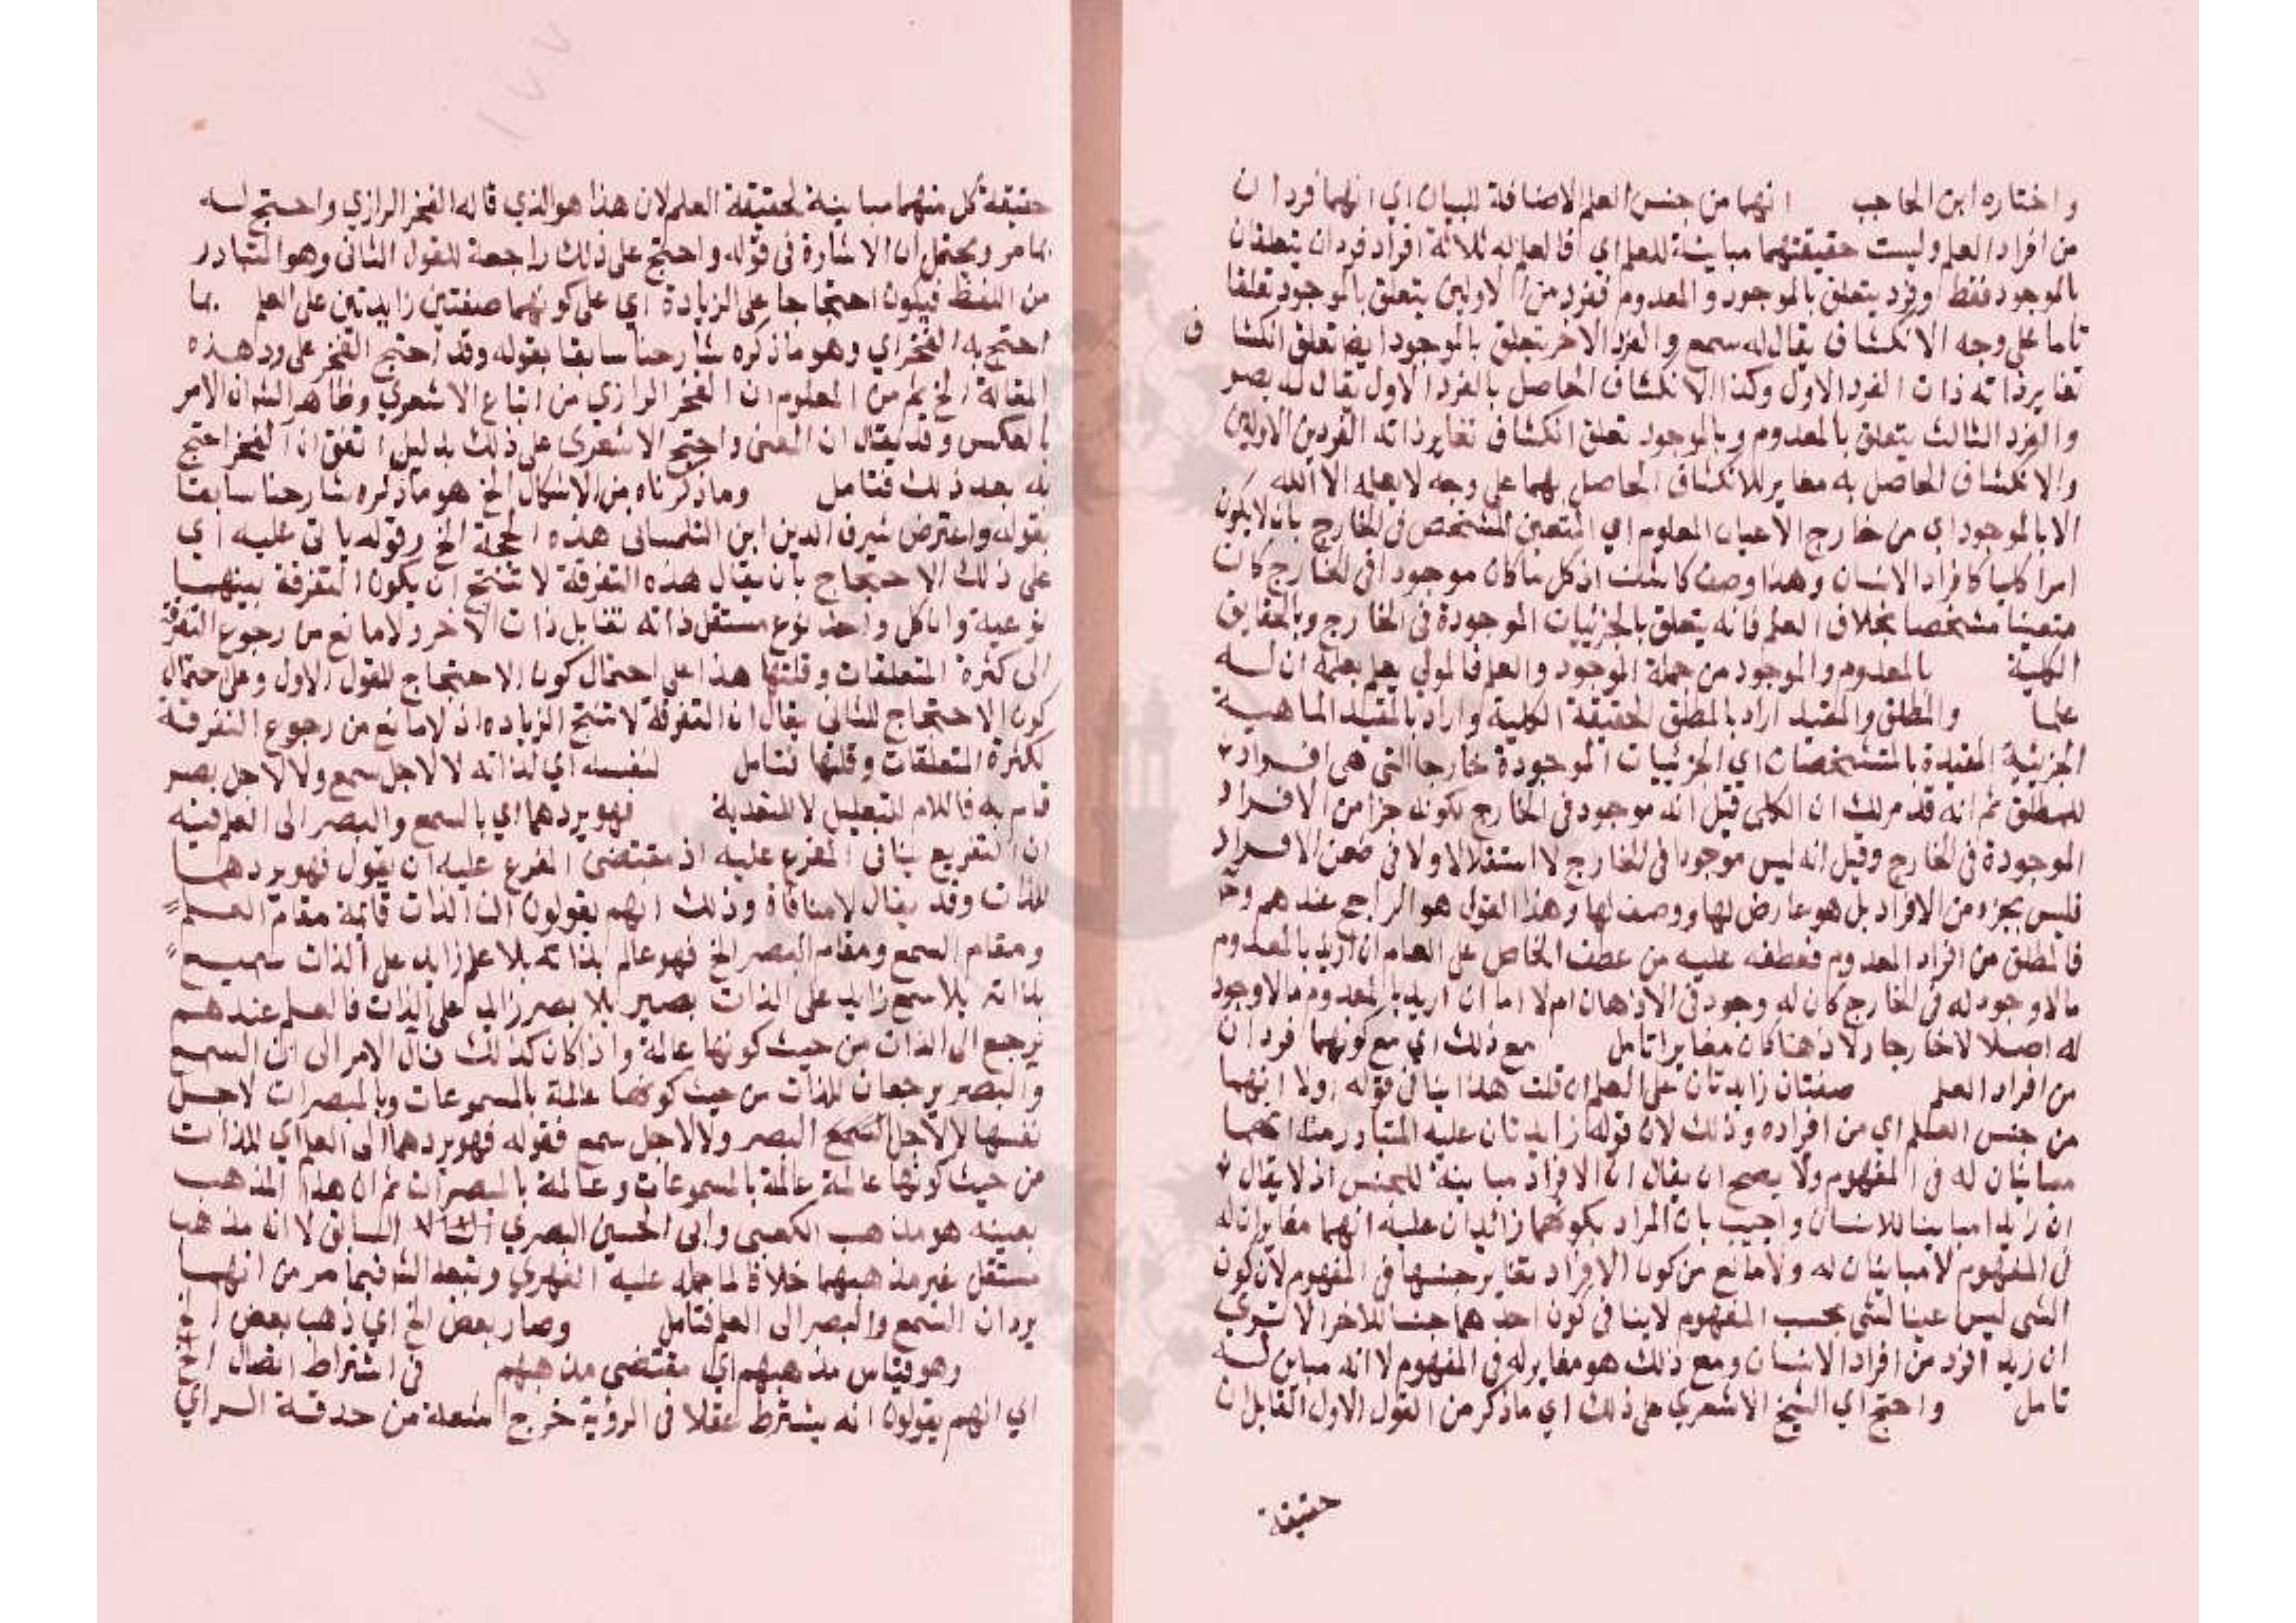 واختاره ابن الحاجب انهما من جنس العلم الاضافة للبيان اي انهما فردان
من افراد العلم وليست حقيقتهما مباينة للعلم اي فالعلم له ثلاثة افراد فردان يتعلقان
بالموجود فقط وفرد يتعلق بالموجود والمعدوم ففرد من الاولين يتعلق بالموجود تعلقا
تاما على وجه الانكشاف يقال له سمع والفرد الاخر يتعلق بالموجود ايضا تعلق انكشا ف
تغاير ذاته ذات الفرد الاول وكذا الانكشاف الحاصل بالفرد الاول يقال له بصر
والفرد الثالث يتعلق بالمعدوم وبالموجود تعلق انكشاف تغاير ذاته الفردين الاولين
والانكشاف الحاصل به مغاير للانكشاف الحاصل بهما على وجه لا يعلمه الا الله
الا بالموجود اي من خارج الاعيان المعلوم اي المتعين المشخص في الخارج بان لا يكون
امرا كليا كافراد الانسان وهذا وصف كاشف اذ كل ما كان موجودا في الخارج كان
متعينا مشخصا بخلاف العلم فانه يتعلق بالجزئيات الموجودة في الخارج وبالحقايق
الكلية بالمعدوم والموجود من جملة الموجود والعلم فالمولى يعلم بعلمه ان له
علما والمطلق والمقيد اراد بالمطلق الحقيقة الكلية واراد بالمقيد الماهية
الجزئية المقيدة بالمتشخصات اي الجزئيات الموجودة خارجا التي هي افراد
للمطلق ثم انه قد مر لك ان الكلي قيل انه موجود في الخارج لكونه جزا من الافراد
الموجودة في الخارج وقيل انه ليس موجودا في الخارج لا استقلالا ولا في ضمن الافراد
فليس بجزء من الافراد بل هو عارض لها ووصف لها وهذا القول هو الراجح عندهم وح
فالمطلق من افراد المعدوم فعطفه عليه من عطف الخاص على العام ان اريد بالمعدوم
ما لا وجود له في الخارج كان له وجود في الاذهان ام لا اما ان اريد بالمعدوم ما لا وجود
له اصلا لا خارجا ولا ذهنا كان مغايرا تامل مع ذلك اي مع كونهما فردان
من افراد العلم صفتان زايدتان على العلم ان قلت هذا ينافي قوله اولا انهما
من جنس العلم اي من افراده وذلك لان قوله زايدتان عليه المتبادر منه انهما
مباينان له في المفهوم ولا يصح ان يقال ان الافراد مباينة للجنس اذ لا يقال
ان زيدا مباينا للانسان واجيب بان المراد بكونهما زائدان عليه انهما مغايران له
في المفهوم لا مباينان له ولا مانع من كون الافراد تغاير جنسها في المفهوم لان كون
الشي ليس عينا لشي بحسب المفهوم لا ينافي كون احدهما جنسا للاخر الا ترى
ان زيدا فرد من افراد الانسان ومع ذلك هو مغاير له في المفهوم لا انه مباين له
تامل واحتج اي الشيخ الاشعري على ذلك اي ما ذكر من القول الاول القايل ان
حقيقة
حقيقة كل منهما مباينة لحقيقة العلم لان هذا هو الذي قاله الفخر الرازي واحتج له
بما مر ويحتمل ان الاشارة في قوله واحتج على ذلك راجعة للقول الثاني وهو المتبادر
من اللفظ فيكون احتجاجا على الزيادة اي على كونهما صفتين زايدتين على العلم بما
احتج به الفخر اي وهو ما ذكره شارحنا سابقا بقوله وقد احتج الفخر على رد هذه
المقالة الخ ثم من المعلوم ان الفخر الرازي من اتباع الاشعري وظاهر الش ان الامر
بالعكس وقد يقال ان المعنى واحتج الاشعرى على ذلك بدليل اتفق ان الفخر احتج
به بعد ذلك فتامل وما ذكرناه من الاشكال الخ هو ما ذكره شارحنا سابقا
بقوله واعترض شرف الدين ابن التلمسانى هذه الحجة الخ وقوله ياتى عليه اي
على ذلك الاحتجاج بان يقال هذه التفرقة لا تنتج ان يكون التفرقة بينهما
نوعية وان كل واحد نوع مستقل ذاته تقابل ذات الاخر ولا مانع من رجوع التفرقة
الى كثرة المتعلقات وقلتها هذا على احتمال كون الاحتجاج للقول الاول وعلى احتمال
كون الاحتجاج للثانى يقال ان التفرقة لا تنتج الزياده اذ لا مانع من رجوع التفرقة
لكثرة المتعلقات وقلتها فتامل لنفسه اي لذاته لا لاجل سمع ولا لاجل بصر
قام به فاللام للتعليل لا للتعدية فهو يردهما اي بالسمع والبصر الى العلم فيه
ان التفريع ينافى المفرع عليه اذ مقتضى المفرع عليه ان يقول فهو يردهما
للذات وقد يقال لا منافاة وذلك انهم يقولون ان الذات قائمة مقام العلم
ومقام السمع ومقام البصر الخ فهو عالم بذاته بلا علم زايد على الذات سميع
بذاته بلا سمع زايد على الذات بصير بلا بصر زايد على الذات فالعلم عندهم
يرجع الى الذات من حيث كونها عالمة واذا كان كذلك فال الامر الى ان السمع
والبصر يرجعان للذات من حيث كونها عالمة بالمسموعات وبالمبصرات لاجل
نفسها لا لاجل السمع البصر ولا لاجل سمع فقوله فهو يردهما الى العلم اي للذات
من حيث كونها عالمة عالمة بالمسموعات وعالمة بالمبصرات ثم ان هذا المذهب
بعينه هو مذهب الكعبى وابى الحسين البصري السابق لا انه مذهب
مستقل غير مذهبهما خلافا لما حمله عليه الفهري وتبعه الش فيما مر من انهما
يردان السمع والبصر الى العلم فتامل وصار بعض الخ اي ذهب بعض الخ
وهو قياس مذهبهم اي مقتضى مذهبهم فى اشتراط اتصال الخ
اي انهم يقولون انه يشترط عقلا فى الرؤية خرج اشعة من حدقة الراي